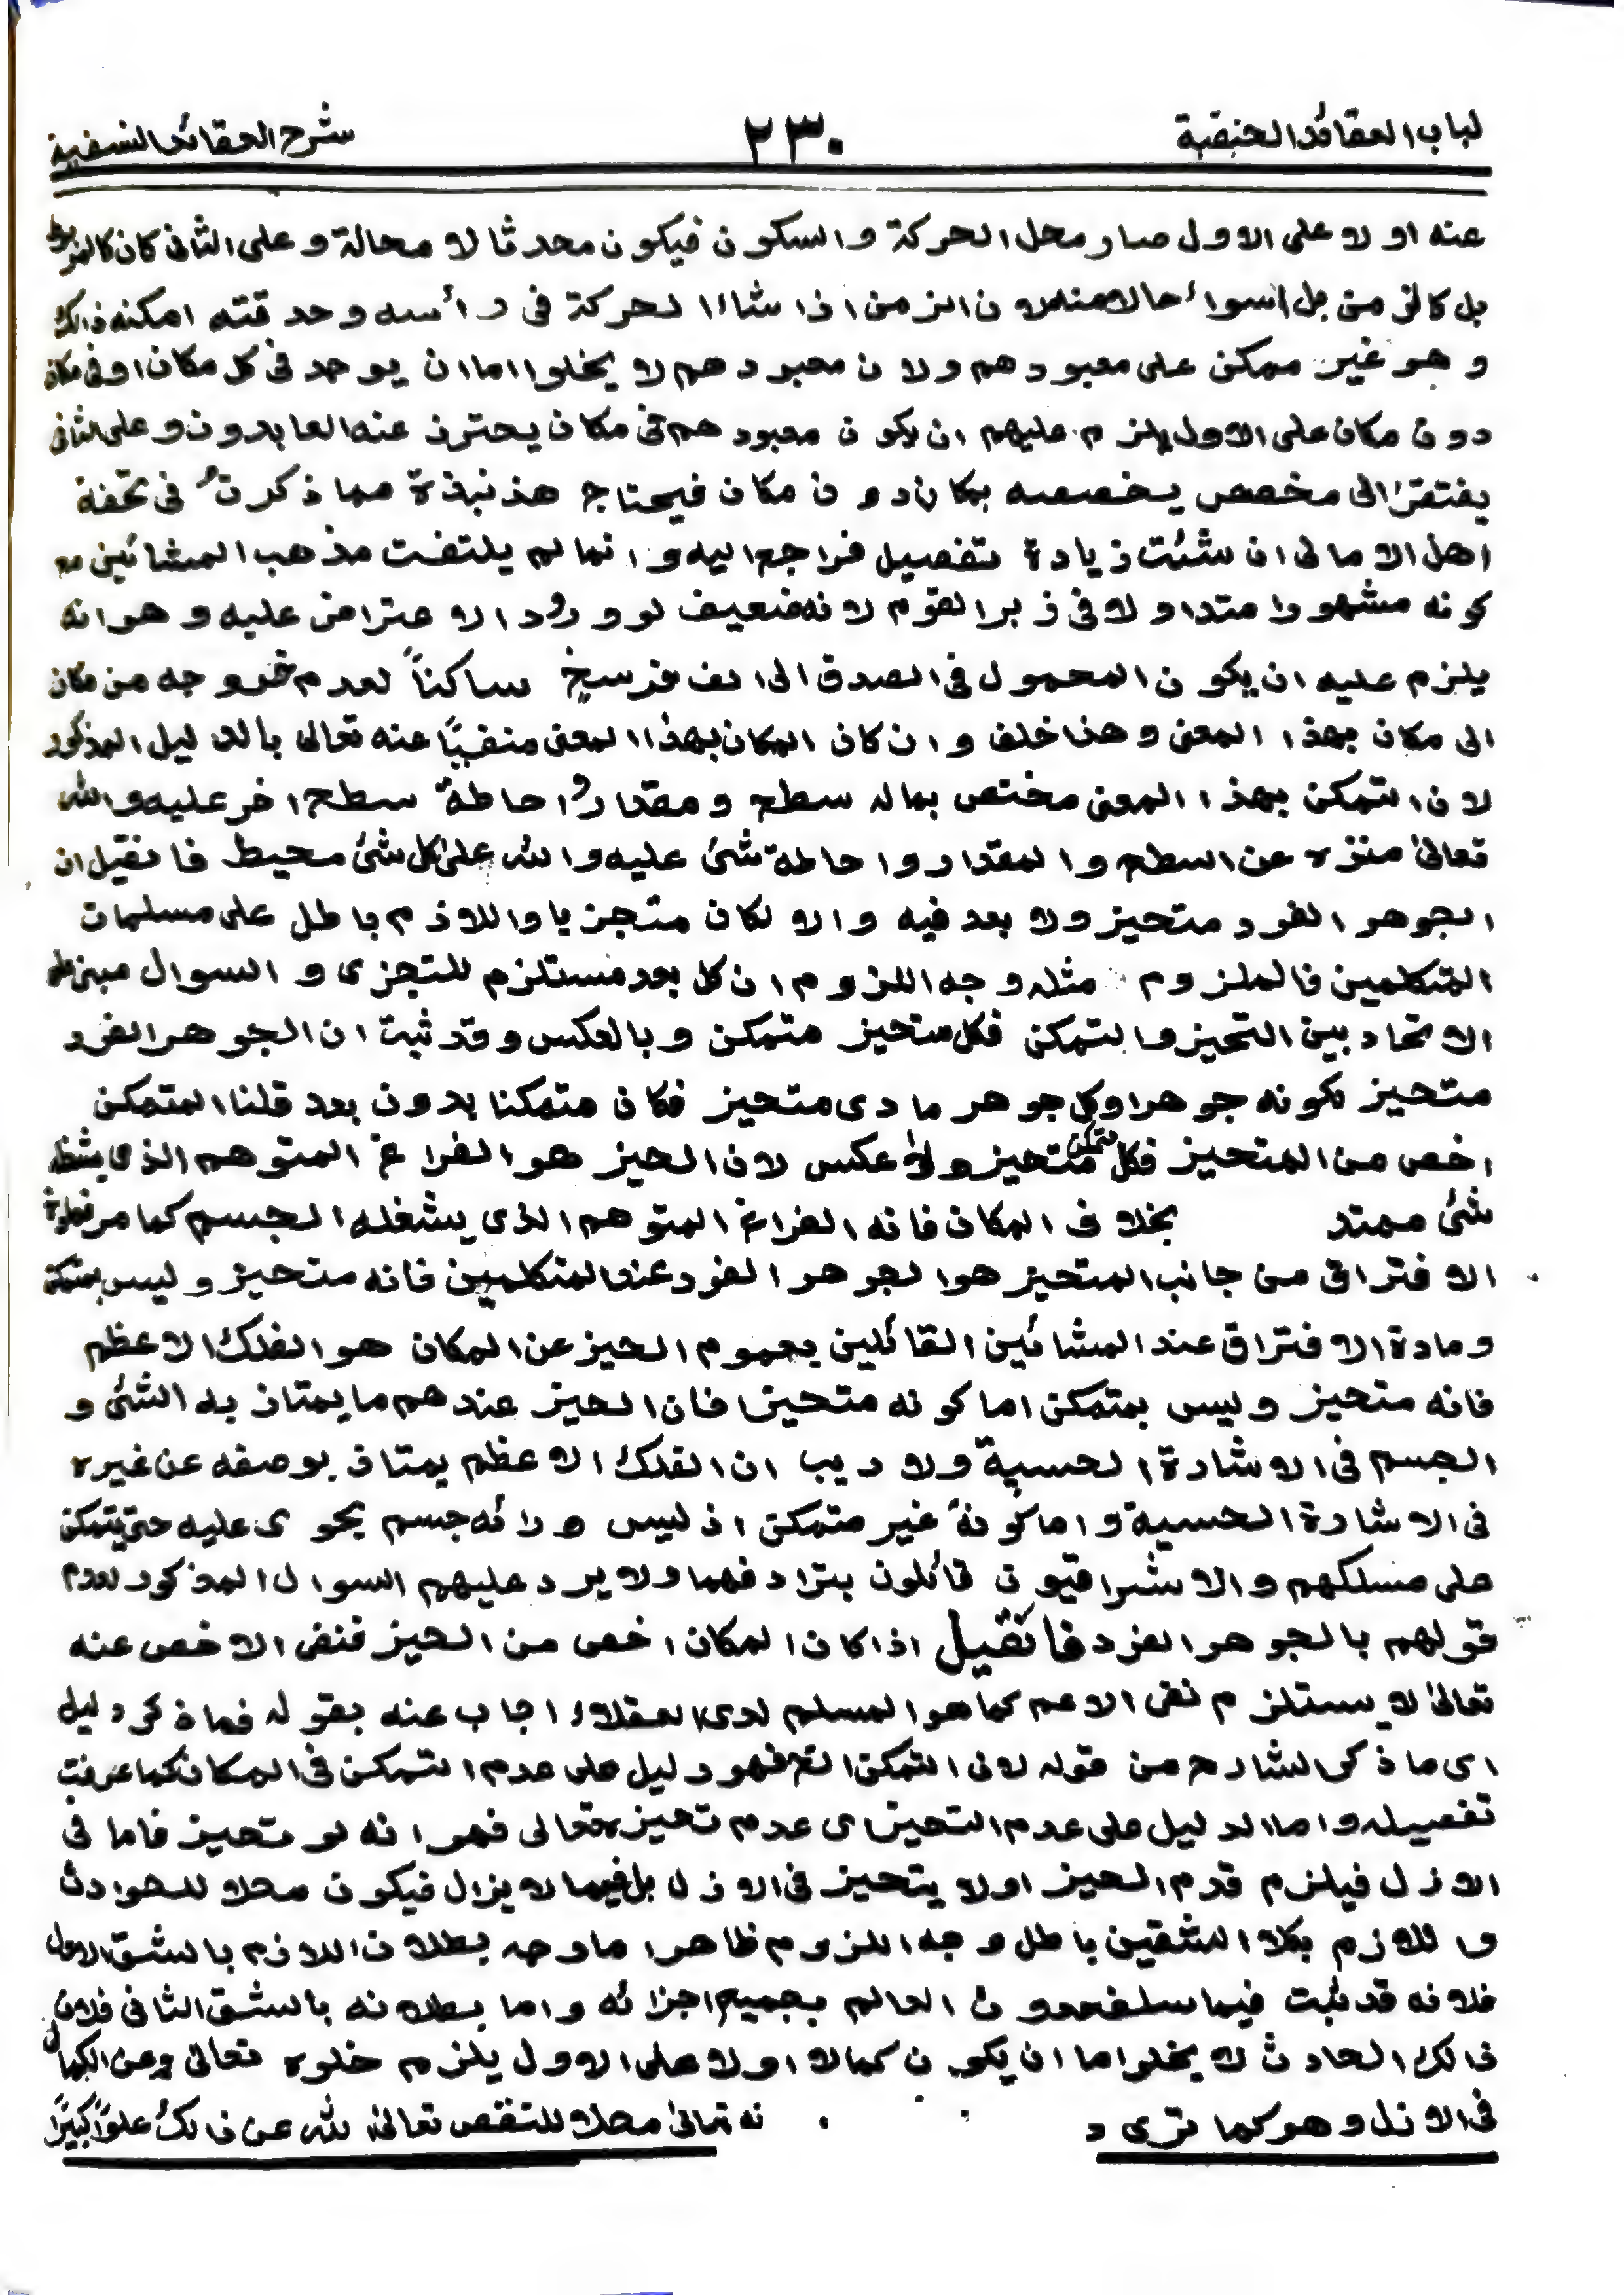 لباب العقائد الحنفية ٢٣٠ شرح العقائد النسفية
عنه او لا على الاول صار محل الحركة والسكون فيكون محدثا لا محالة وعلى الثانى كان كالمربوط
بل كالزمن بل اسوا حالا منه لان الزمن اذا شاء الحركة فى رأسه وحدقته امكنه ذالك
وهو غير ممكن على معبودهم ولان معبودهم لا يخلوا اما ان يوجد فى كل مكان او فى مكان
دون مكان على الاول يلزم عليهم ان يكون معبودهم فى مكان يحترز عنه العابدون وعلى الثانى
يفتقر الى مخصص يخصصه بمكان دون مكان فيحتاج هذ نبذة مما ذكرتُ فى تحفة
اهل الامالى ان شئت زيادة تفصيل فراجع اليه وانما لم يلتفت مذهب المشائين مع
كونه مشهورا متداولا فى زبر القوم لانه ضعيف لورود الاعتراض عليه وهو انه
يلزم عليه ان يكون المحمول فى الصدق الى الف فرسخٍ ساكناً لعدم خروجه من مكان
الى مكان بهذا المعنى وهذا خلف وان كان المكان بهذا المعنى منفيًا عنه تعالى بالدليل المذكور
لان التمكن بهذا المعنى مختص بماله سطح ومقدار واحاطة سطح اخر عليه والله
تعالىٰ منزه عن السطح والمقدار واحاطة شئ عليه والله علىٰ كل شئ محيط فانقيل ان
الجوهر الفرد متحيز ولا بعد فيه والا لكان متجزيا واللازم باطل على مسلمات
المتكلمين فالملزوم مثله وجه اللزوم ان كل بعد مستلزم للتجزى والسوال مبنى على
الاتحاد بين التحيز والتمكن فكل متحيز متمكن وبالعكس وقد ثبت ان الجوهر الفرد
متحيز لكونه جوهرا وكل جوهر مادى متحيز فكان متمكنا بدون بعد قلنا المتمكن
اخص من المتحيز فكل متمكن متحيز ولا عكس لان الحيز هو الفراغ المتوهم الذى يشغله
شئ ممتد بخلاف المكان فانه الفراغ المتوهم الذى يشغله الجسم كما مر فمادة
الافتراق من جانب المتحيز هو الجوهر الفرد عند المتكلمين فانه متحيز وليس بمتمكن
ومادة الافتراق عند المشائين القائلين بعموم الحيز عن المكان هو الفلك الاعظم
فانه متحيز وليس بمتمكن اما كونه متحيزا فان الحيز عندهم ما يمتاز به الشئ و
الجسم فى الاشارة الحسية ولا ريب ان الفلك الاعظم يمتاز بوصفه عن غيره
فى الاشارة الحسية واما كونهٗ غير متمكن اذ ليس ورائه جسم يحوى عليه حتى يتمكن
على مسلكهم والاشراقيون قائلون بترادفهما ولا يرد عليهم السوال المذكور لعدم
قولهم بالجوهر الفرد فانقيل اذا كان المكان اخص من الحيز فنفى الاخص عنه
تعالىٰ لا يستلزم نفى الاعم كما هو المسلم لدى العقلاء اجاب عنه بقوله فما ذكر دليل
اى ما ذكر الشارح من قوله لان التمكن الخ فهو دليل على عدم التمكن فى المكان كما عرفت
تفصيله واما الدليل على عدم التحيز اى عدم تحيزه تعالى فهو انه لو تحيز فاما فى
الازل فيلزم قدم الحيز او لا يتحيز فى الازل بل فيما لا يزال فيكون محلا للحوادث
واللازم بكلا الشقين باطل وجه اللزوم ظاهر اما وجه بطلان اللازم بالشق الاول
فلانه قد ثبت فيما سلف حدوث العالم بجميع اجزائه واما بطلانه بالشق الثانى فلان
ذالك الحادث لا يخلوا اما ان يكون كمالا او لا على الاول يلزم خلوه تعالىٰ عن الكمال
فى الازل وهو كما ترى نه تعالىٰ محلا للنقص تعالىٰ الله عن ذالك علوًا كبيرًا